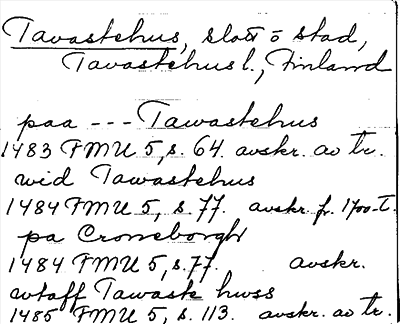 Tavastehus, slott o stad,
Tavastehus l., Finland
paa --- Tawastehus
1483 FMU 5, s. 64. avskr. av tr.
wid Tawastehus
1484 FMU 5, s. 77. avskr. fr. 1700-t.
pa Croneborgh
1484 FMU 5, s. 77. avskr.
wtaff Tawaste hwss
1485 FMU 5, s. 113. avskr. av tr.